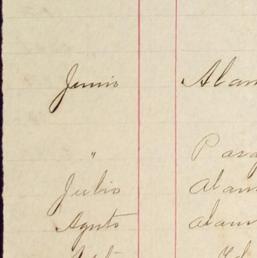 Junio Alam
" Parq
Julio Alam
Agsto Alam